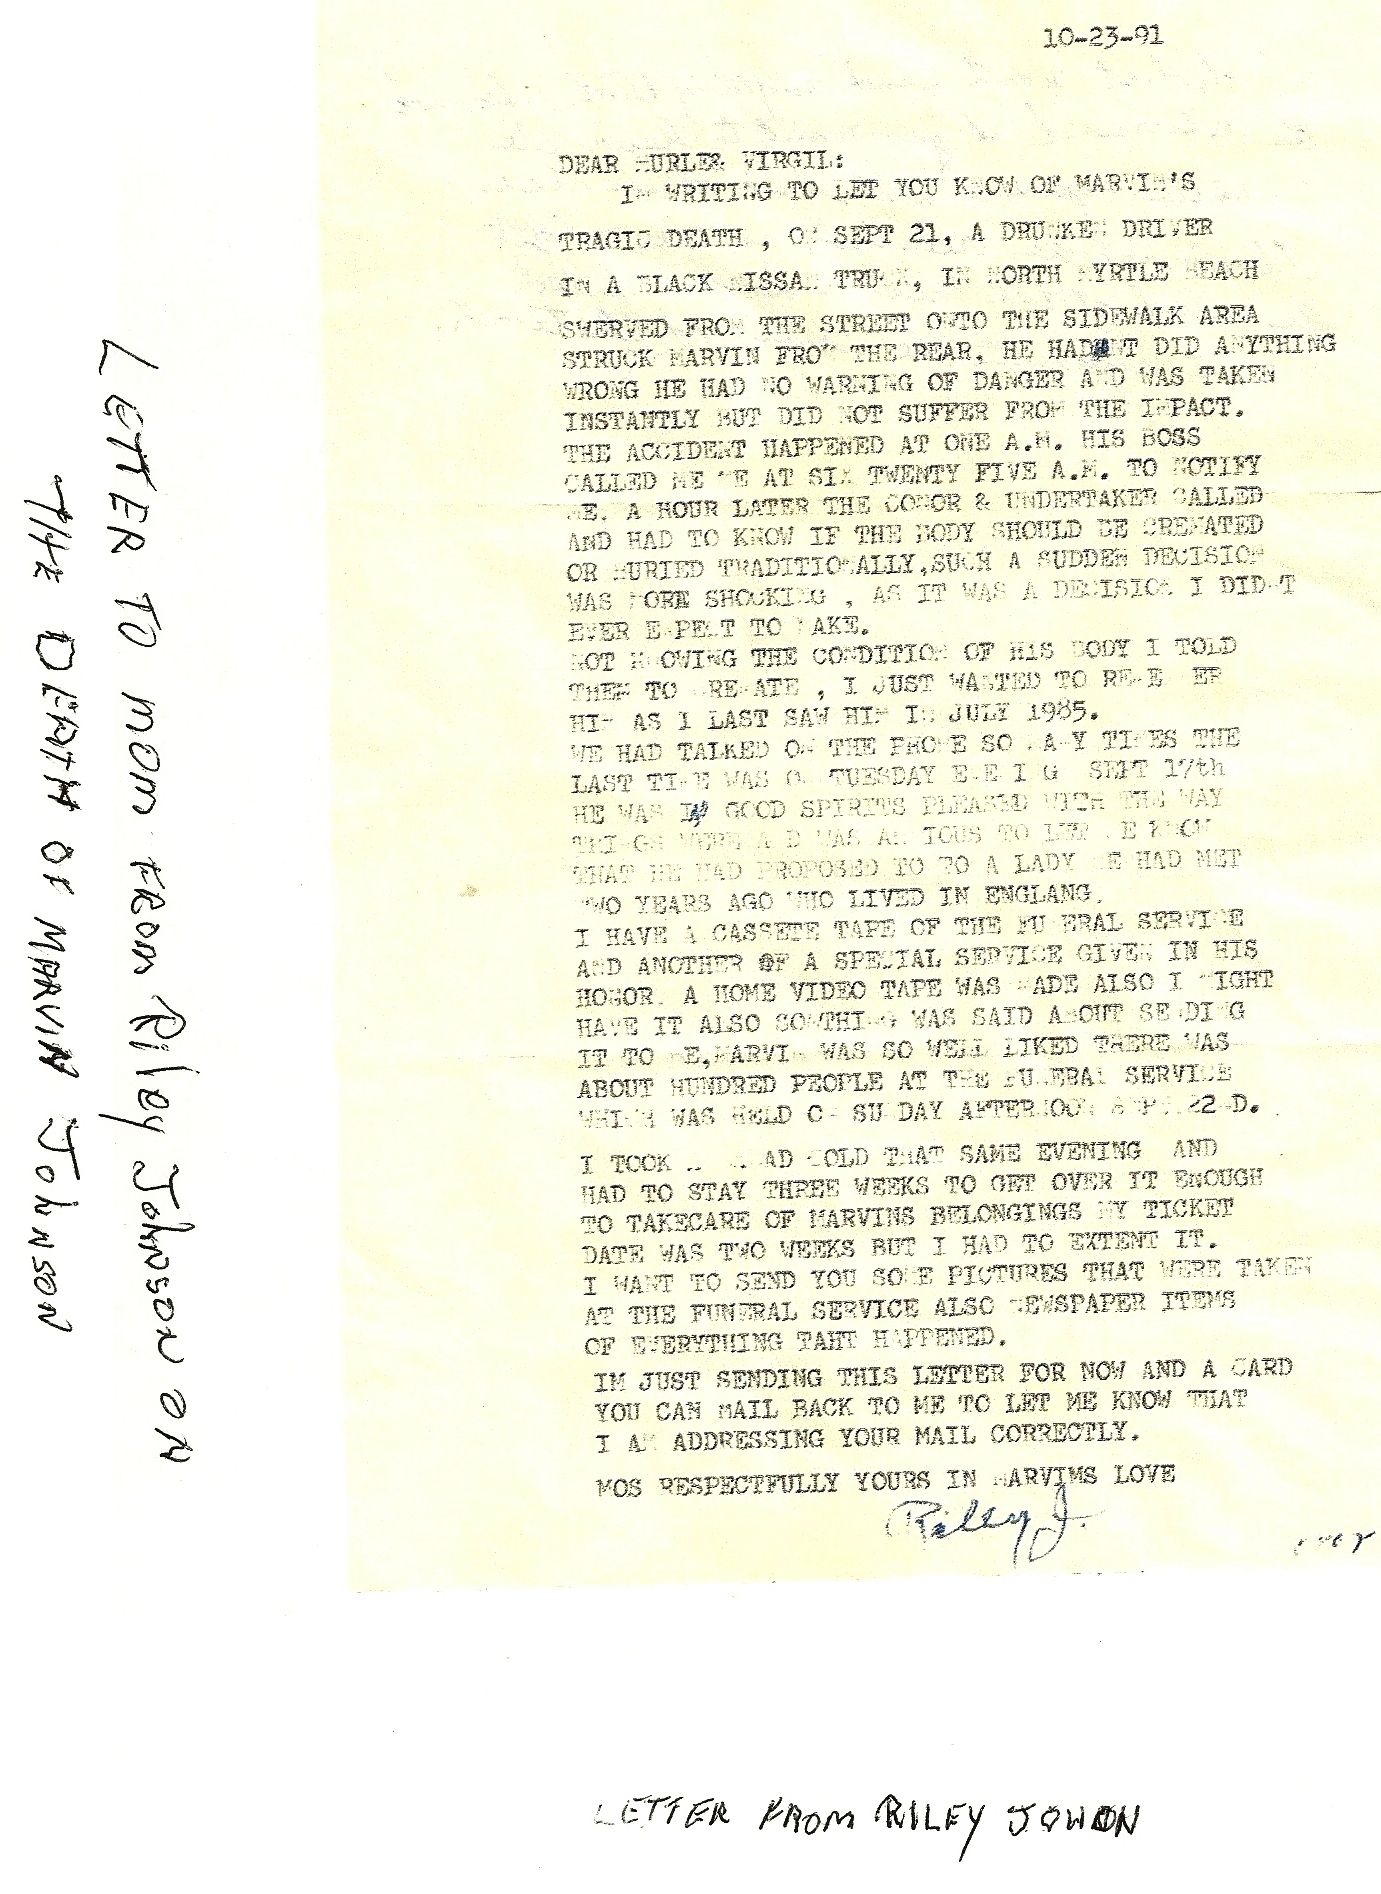 10-23-91
DEAR & VIRGIL:
IM WRITING TO LET YOU KNOW OF MARVIN'S
TRAGIC DEATH , ON SEPT 21, A DRUNKEN DRIVER
IN A BLACK NISSAN TRUCK, IN NORTH MYRTLE BEACH
SWERVED FROM THE STREET ONTO THE SIDEWALK AREA
STRUCK MARVIN FROM THE REAR. HE HADNT DID ANYTHING
WRONG HE HAD NO WARNING OF DANGER AND WAS TAKEN
INSTANTLY BUT DID NOT SUFFER FROM THE IMPACT.
THE ACCIDENT HAPPENED AT ONE A.M. HIS BOSS
CALLED ME ME AT SIX TWENTY FIVE A.M. TO NOTIFY
ME. A HOUR LATER THE & UNDERTAKER CALLED
AND HAD TO KNOW IF THE BODY SHOULD BE CREMATED
OR BURIED TRADITIONALLY,SUCH A SUDDEN DECISION
WAS MORE SHOCKING , AS IT WAS A DECISION I DIDNT
EVER EXPECT TO MAKE.
NOT KNOWING THE CONDITION OF HIS BODY I TOLD
THEM TO CREMATE , I JUST WANTED TO REMEMBER
HIM AS I LAST SAW HIM IN JULY 1985.
WE HAD TALKED ON THE PHONE SO MANY TIMES THE
LAST TIME WAS ON TUESDAY EVENING SEPT 17th
HE WAS IN GOOD SPIRITS PLEASED WITH THE WAY
THINGS WERE AND WAS ANXIOUS TO LET ME KNOW
THAT HE HAD PROPOSED TO TO A LADY HE HAD MET
TWO YEARS AGO WHO LIVED IN ENGLANG.
I HAVE A CASSETE TAPE OF THE FUNERAL SERVICE
AND ANOTHER OF A SPECIAL SERVICE GIVEN IN HIS
HONOR. A HOME VIDEO TAPE WAS MADE ALSO I MIGHT
HAVE IT ALSO SOMTHING WAS SAID ABOUT SENDING
IT TO ME,MARVIN WAS SO WELL LIKED THERE WAS
ABOUT HUNDRED PEOPLE AT THE FUNERAL SERVICE
WHICH WAS HELD ON SUNDAY AFTERNOON SEPT.22ND.
I TOOK BAD COLD THAT SAME EVENING AND
HAD TO STAY THREE WEEKS TO GET OVER IT ENOUGH
TO TAKECARE OF MARVINS BELONGINGS MY TICKET
DATE WAS TWO WEEKS BUT I HAD TO EXTENT IT.
I WANT TO SEND YOU SOME PICTURES THAT WERE TAKEN
AT THE FUNERAL SERVICE ALSO NEWSPAPER ITEMS
OF EVERYTHING TAHT HAPPENED.
IM JUST SENDING THIS LETTER FOR NOW AND A CARD
YOU CAN MAIL BACK TO ME TO LET ME KNOW THAT
I AM ADDRESSING YOUR MAIL CORRECTLY.
MOS RESPECTFULLY YOURS IN MARVIMS LOVE
Riley J.
over
LETTER TO MOM FROM Riley Johnson ON
THE DEATH OF MARVIN JOHNSON
LETTER FROM RILEY